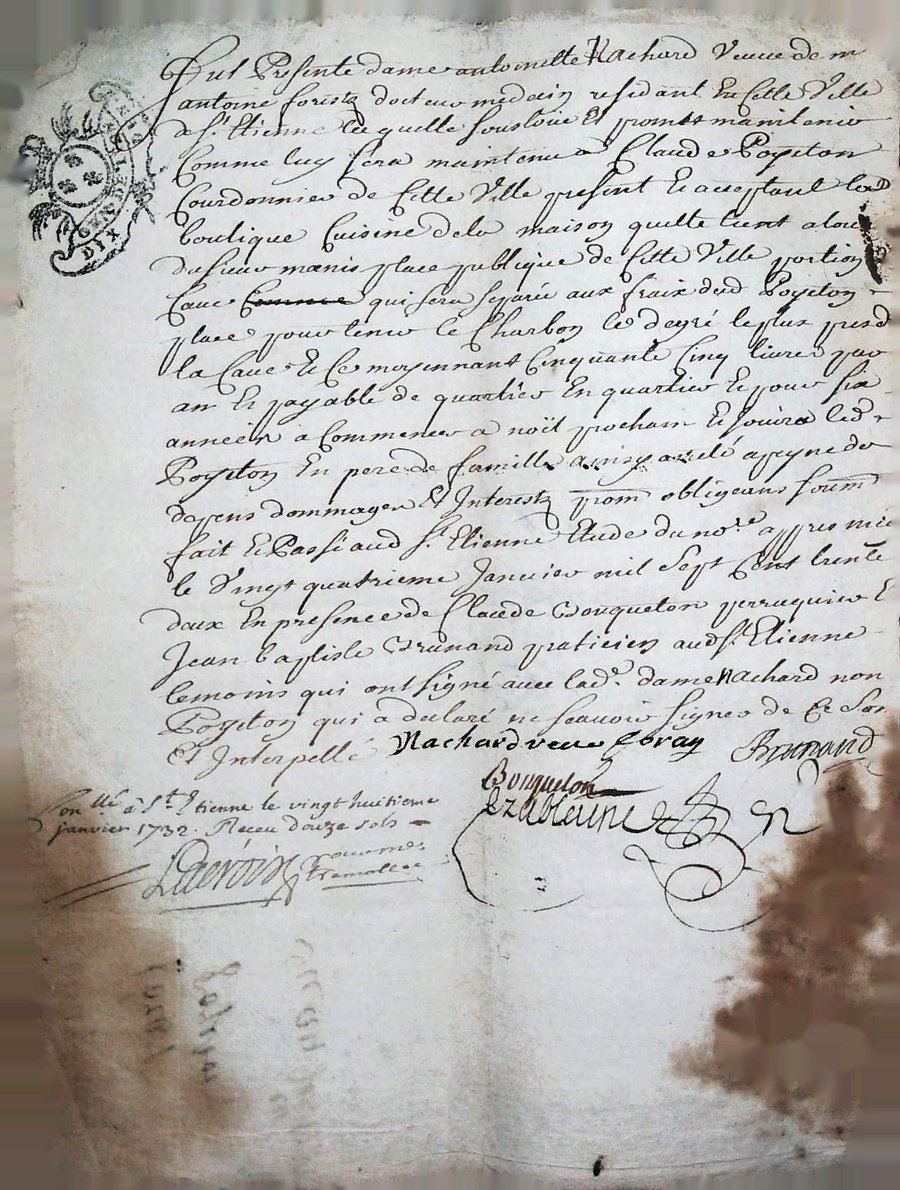 Fut Presente dame antoinette Nachard Veuve de mr
antoine forestz docteur medecin residant En Cette Ville
de St Etienne laquelle soustoue Et promet maintenir
Comme luy sera maintenu a Claude Poyeton
Courdonnier de Cette Ville present Et acceptant led
boutique Cuisine dela maison quelle tient a louage
du sieur place publique de Cette Ville portion
Cave Comme qui sera separée aux fraix dud Poyeton
place pour tenir le Charbon le degré le plus pres d
la Cave Et Ce moyennant Cinquante Cinq livres par
an Et payable de quartier En quartier Et pour six
années a Commencer a noël prochain Et Jouira led
Poyeton En pere de famille apeyne de
depens dommages Et Interestz prom obligeans soum
fait Et Passé aud St Etienne Etude du nore appres midi
le Vingt quatrieme Janvier mil Sept Cent trente
deux En presence de Claude Bouqueton perruquier E
Jean baptiste Brunand praticien aud St Etienne
temoins qui ont signé avec lade dame Nachard non
Poyeton qui a declaré ne scavoir signer de Ce Son
Et Interpellé Nachard veuve Brunand
Bouqueton
Conllé à St Etienne le vingt huitieme
janvier 1732. Receu douze sols
Lacroix
GEN DE LION
DIX